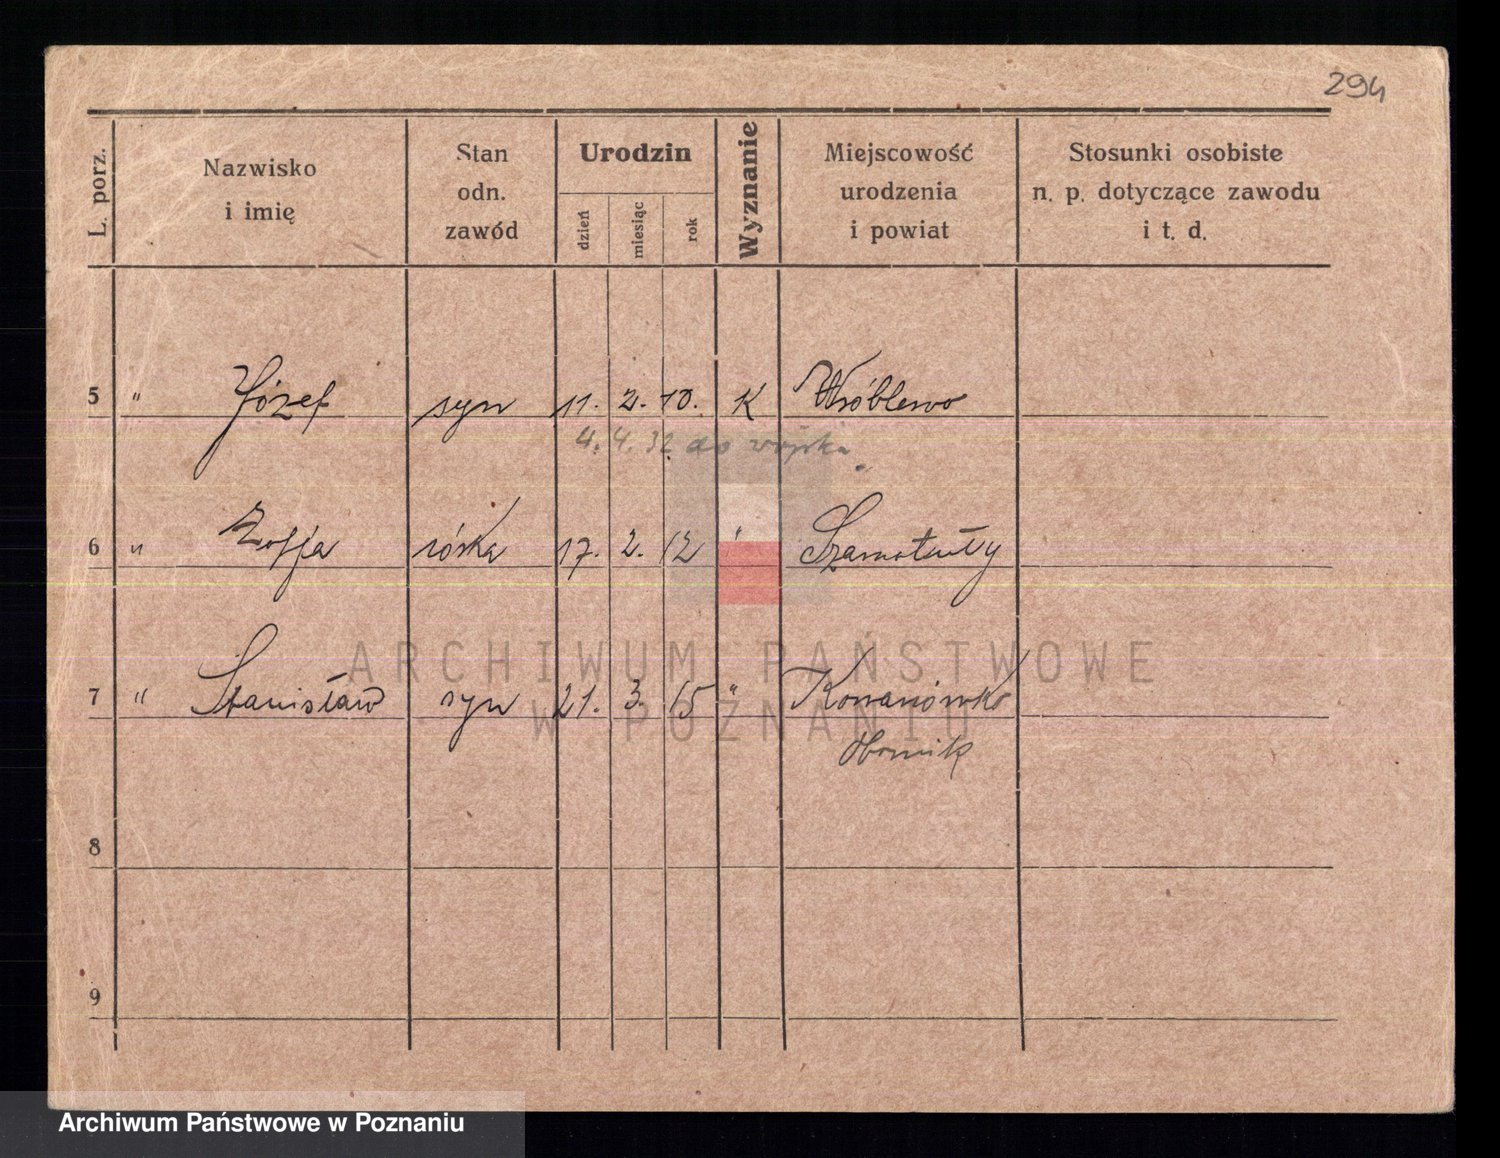 294
L. porz.
Nazwisko
i imię
Stan
odn.
zawód
Urodzin
dzień
miesiąc
rok
Wyznanie
Miejscowość
urodzenia
i powiat
Stosunki osobiste
n. p. dotyczące zawodu
i t. d.
5 " Józef syn 11. 2. 10. K Wróblewo
4. 4. 32 do wojska
6 " Zofja córka 17. 2. 12 " Szamotuły
7 " Stanisław syn 21. 3. 15 " Kowanówko
Obornik
8
9
ARCHIWUM PAŃSTWOWE
W POZNANIU
Archiwum Państwowe w Poznaniu